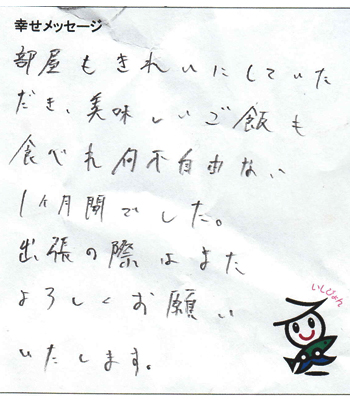 幸せメッセージ
部屋もきれいにしていた
だき、美味しいご飯も
食べれ何不自由ない
1ケ月間でした。
出張の際はまた
よろしくお願い
いたします。
いしぴょん